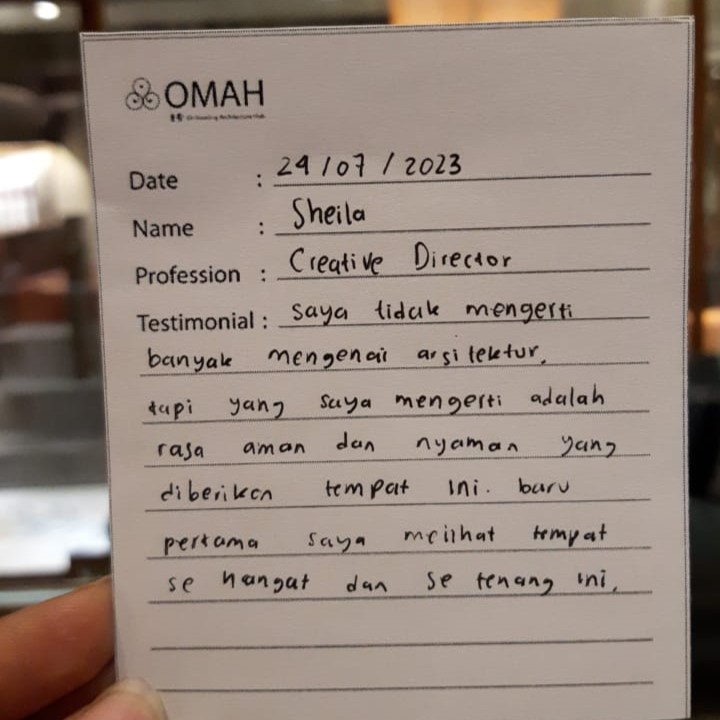 OMAH
Date : 29/07/2023
Name : Sheila
Profession : Creative Director
Testimonial : saya tidak mengerti
banyak mengenai arsitektur,
tapi yang saya mengerti adalah
rasa aman dan nyaman yang
diberikan tempat ini. baru
pertama saya melihat tempat
se hangat dan se tenang ini.